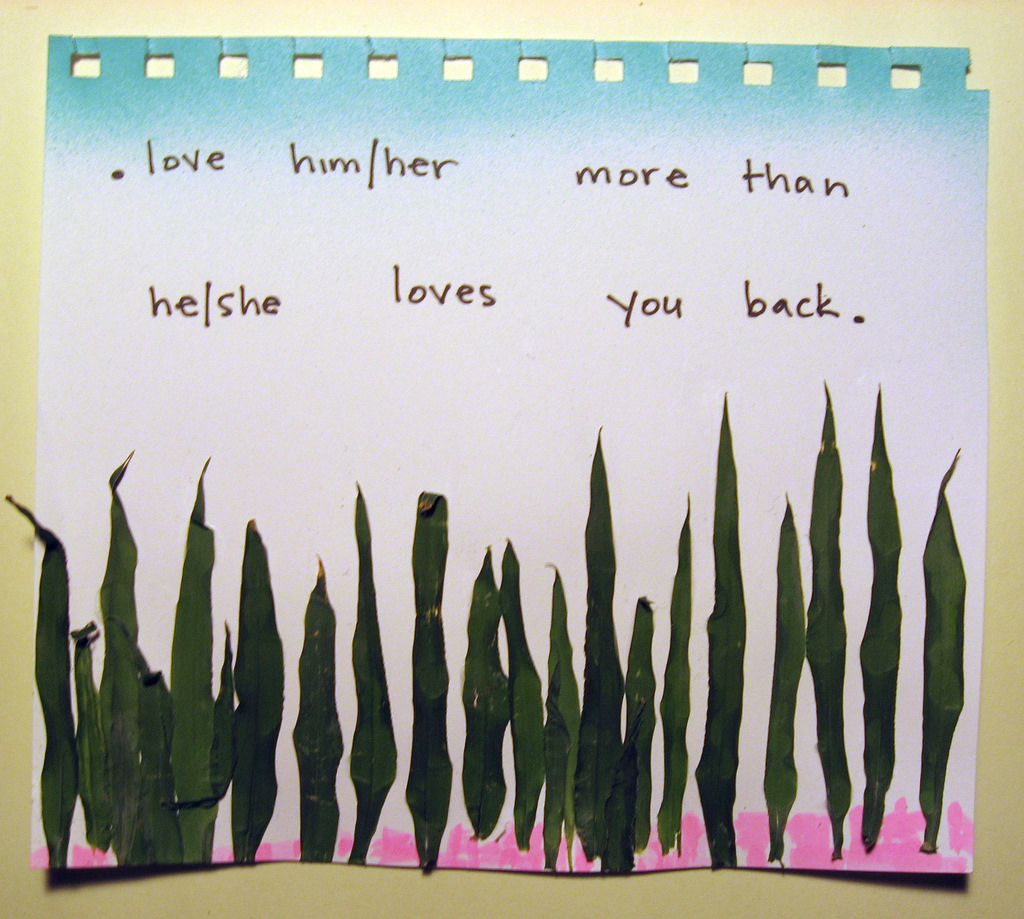 . love him/her more than
he/she loves you back.